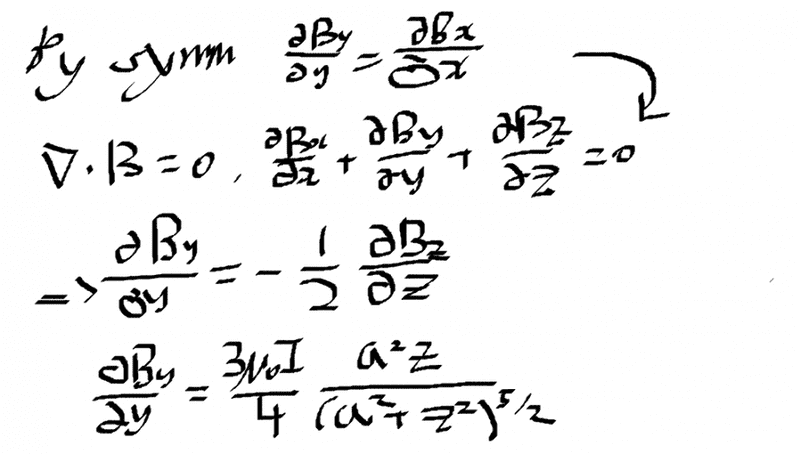 By symm ∂By/∂y = ∂Bx/∂x
∇·B = 0, ∂Bx/∂x + ∂By/∂y + ∂Bz/∂z = 0
=> ∂By/∂y = - 1/2 ∂Bz/∂z
∂By/∂y = 3μ₀I/4 a²z/(a²+z²)^5/2